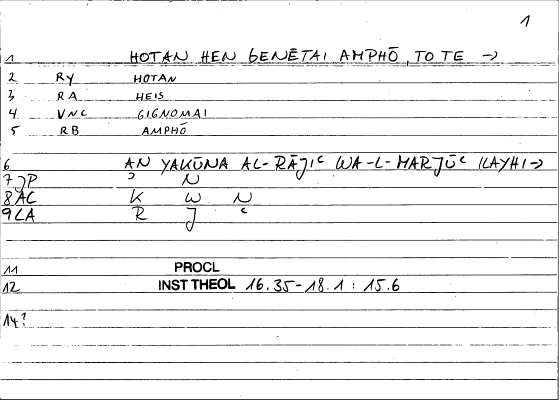 1
1 HOTAN HEN GENĒTAI AMPHŌ, TO TE →
2 RY HOTAN
3 RA HEIS
4 VNC GIGNOMAI
5 RB AMPHŌ
6 AN YAKŪNA AL-RĀJIC WA-L-MARJŪC ILAYHI →
7 JP ʾ N
8 AC K W N
9 LA R J C
11 PROCL
12 INST THEOL 16.35-18.1 : 15.6
14?